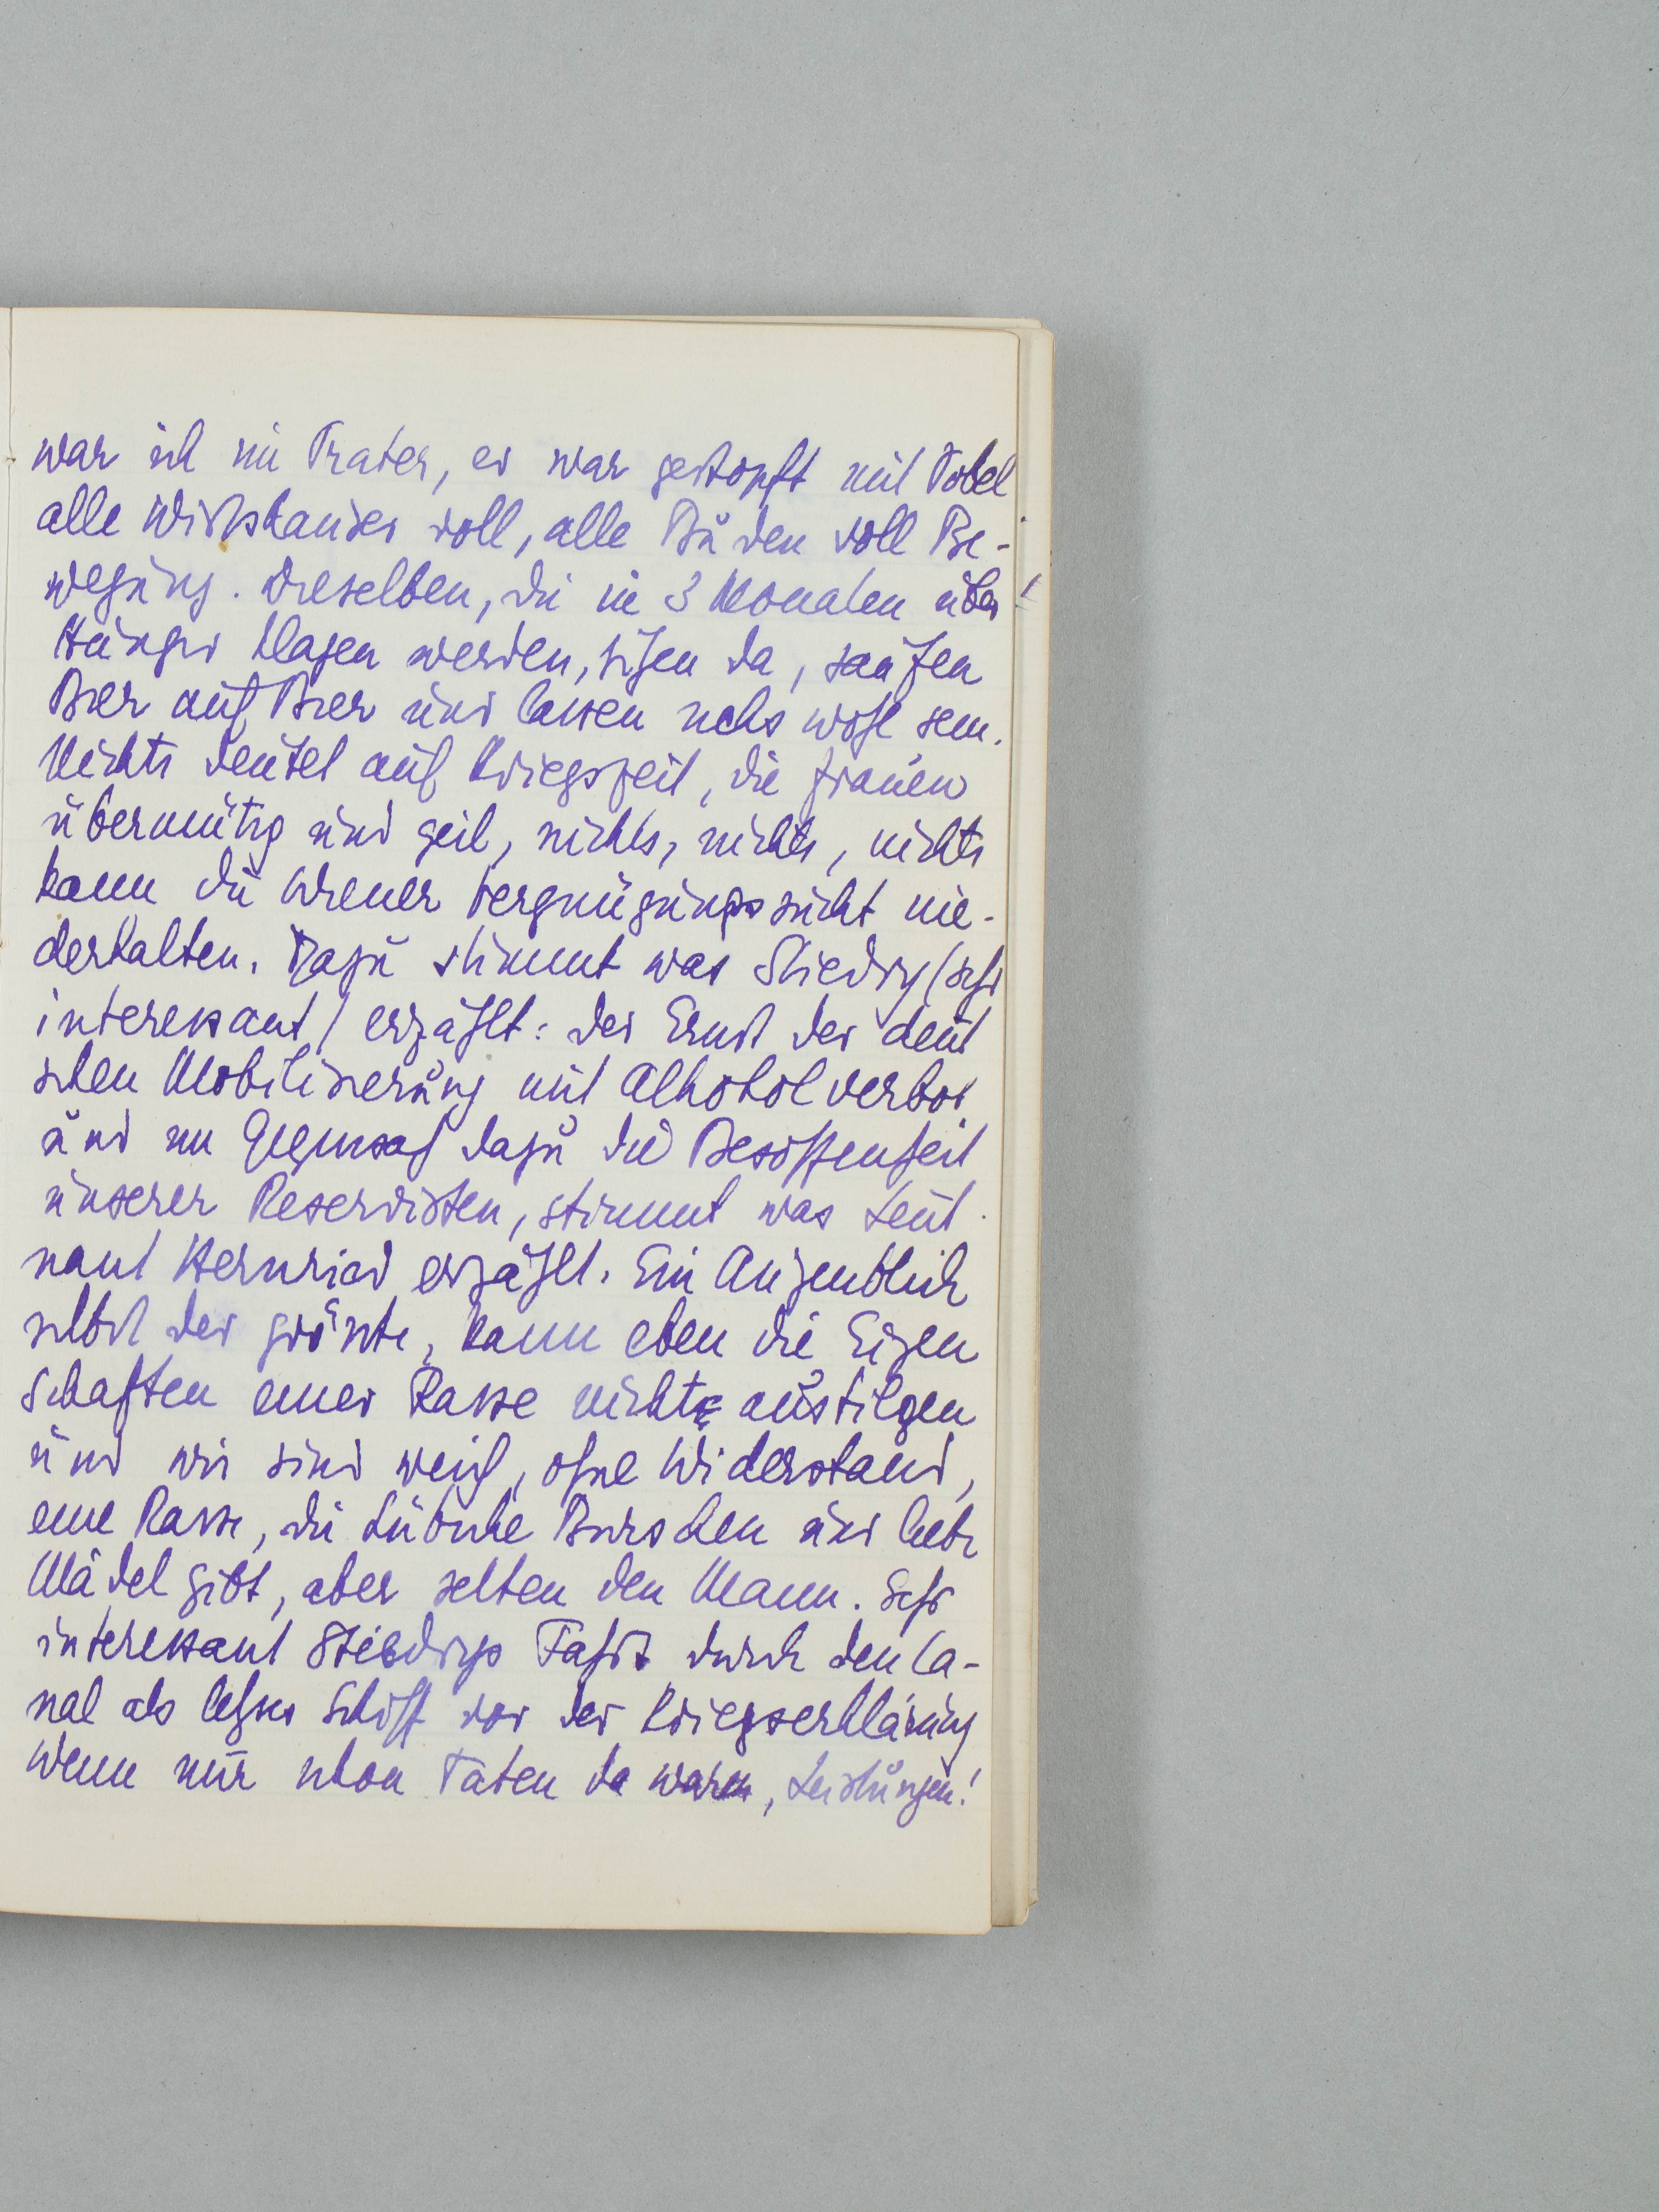 war ich im Prater, er war gestopft mit Pöbel
alle Wirtshäuser voll, alle Buden voll Be-
wegung. Dieselben, die in 3 Monaten über
Hunger klagen werden, sitzen da, saufen
Bier auf Bier und lassen sichs wohl sein.
Nichts deutet auf Kriegszeit, die Frauen
übermütig und geil, nichts, nichts, nichts
kann die Wiener Vergnügungssucht nie-
derhalten. Dazu stimmt was Stiedry (sehr
interessant) erzählt: der Ernst der deut
schen Mobilisierung mit Alkoholverbot
und im Gegensatz dazu die Besoffenheit
unserer Reservisten, stimmt was Leut-
nant Hernried erzählt. Ein Augenblick
selbst der grösste, kann eben die Eigen
schaften einer Rasse nicht austilgen
und wir sind weich, ohne Widerstand,
eine Rasse, die hübsche Burschen und liebe
Mädel gibt, aber selten den Mann. Sehr
interessant Stiedrys Fahrt durch den Ca-
nal als letztes Schiff vor der Kriegserklärung
Wenn nur schon Taten da waren, Leistungen!